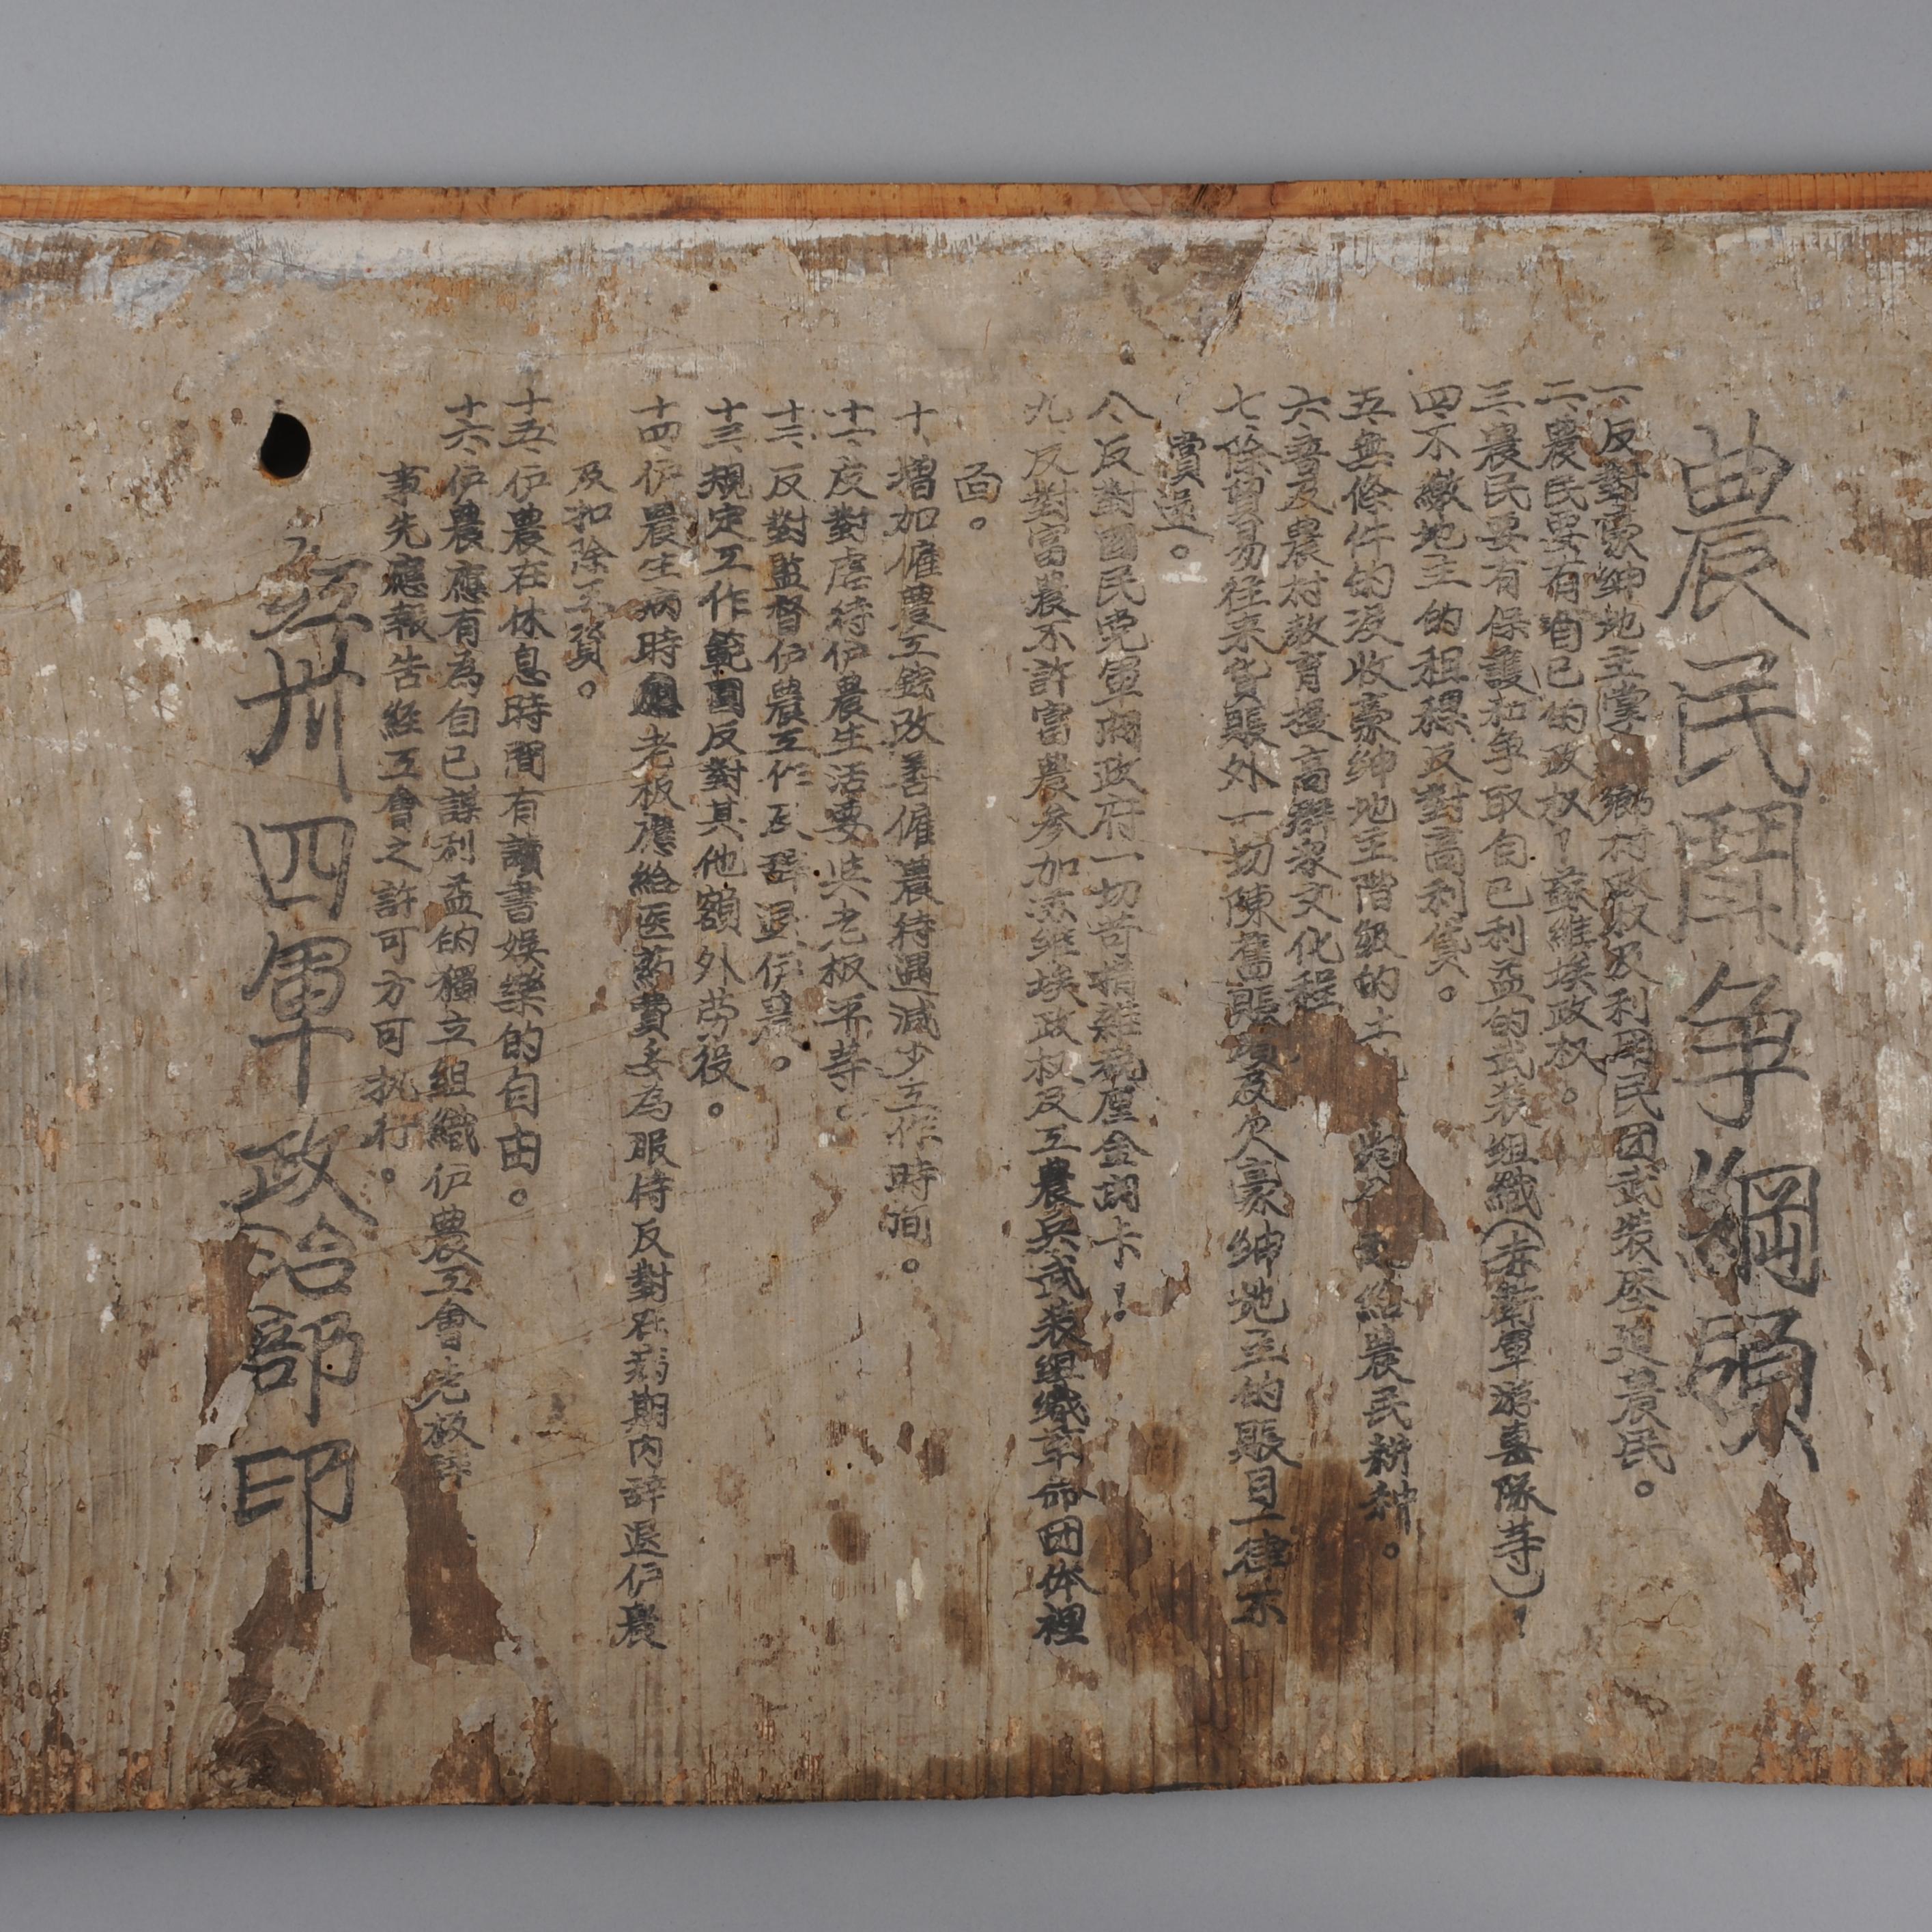 農民鬪争綱領
一、反對豪紳地主掌 鄉村政权及利用民团武装压迫農民。
二、農民要有自己的政权！蘇維埃政权。
三、農民要有保護和争取自己利益的武装组織（赤衛軍游击隊等）！
四、不繳地主的租稞反對高利貸。
五、無條件的没收豪紳地主階級的土 給農民耕种。
六、普及農村教育提高群衆文化程
七、除貿易往来貨賬外一切陳舊賬項及欠豪紳地主的賬目一律不
賞還。
八、反對國民党軍阀政府一切苛捐雜税厘金関卡！
九、反對富農不許富農参加苏維埃政权及工農兵武装組織革命团体裡
面。
十、增加僱農工錢改善僱農待遇減少工作時间。
十一、反對虐待僱農生活要與老板平等。
十二、反對監督僱農工作反對辞退僱農。
十三、規定工作範圍反對其他額外劳役。
十四、僱農生病時 老板應給医药費妥為服侍反對在病期内辞退僱農
及扣除工資。
十五、僱農在休息時間有讀書娛樂的自由。
十六、僱農應有為自己謀利益的獨立組織僱農工會老板辞
事先應報告經工會之許可方可执行。
红卅四軍政治部印